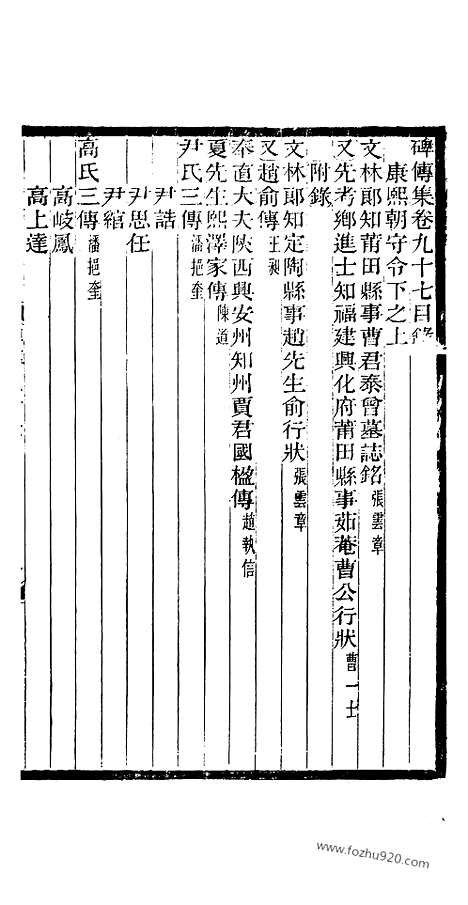 碑傳集卷九十七目錄
康熙朝守令下之上
文林郎知莆田縣事曹君泰曾墓誌銘 張雲章
又先考鄉進士知福建興化府莆田縣事茹菴曹公行狀 曹一士
附錄
文林郎知定陶縣事趙先生俞行狀 張雲章
又趙俞傳 汪昶
奉直大夫陝西興安州知州賈君國楹傳 趙執信
夏先生熙澤家傳 陳道
尹氏三傳 潘挹奎
尹誥
尹思任
尹綰
高氏三傳 潘挹奎
高岐鳳
高上達
www.fozhu920.com